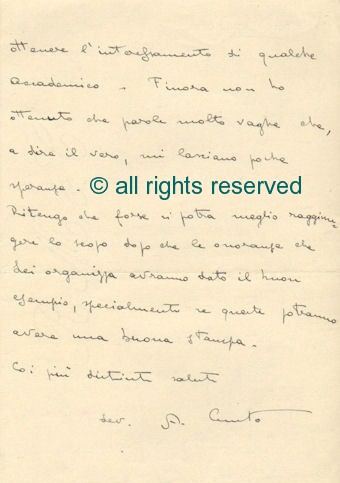 ottenere l'interessamento di qualche
accademico. Finora non ho
ottenuto che parole molto vaghe che,
a dire il vero, mi lasciano poche
speranze.
© all rights reserved
Ritengo che forse si potrà meglio raggiun-
gere lo scopo dopo che le onoranze che
Lei organizza avranno dato il buon
esempio, specialmente se queste potranno
avere una buona stampa.
Coi più distinti saluti
dev.